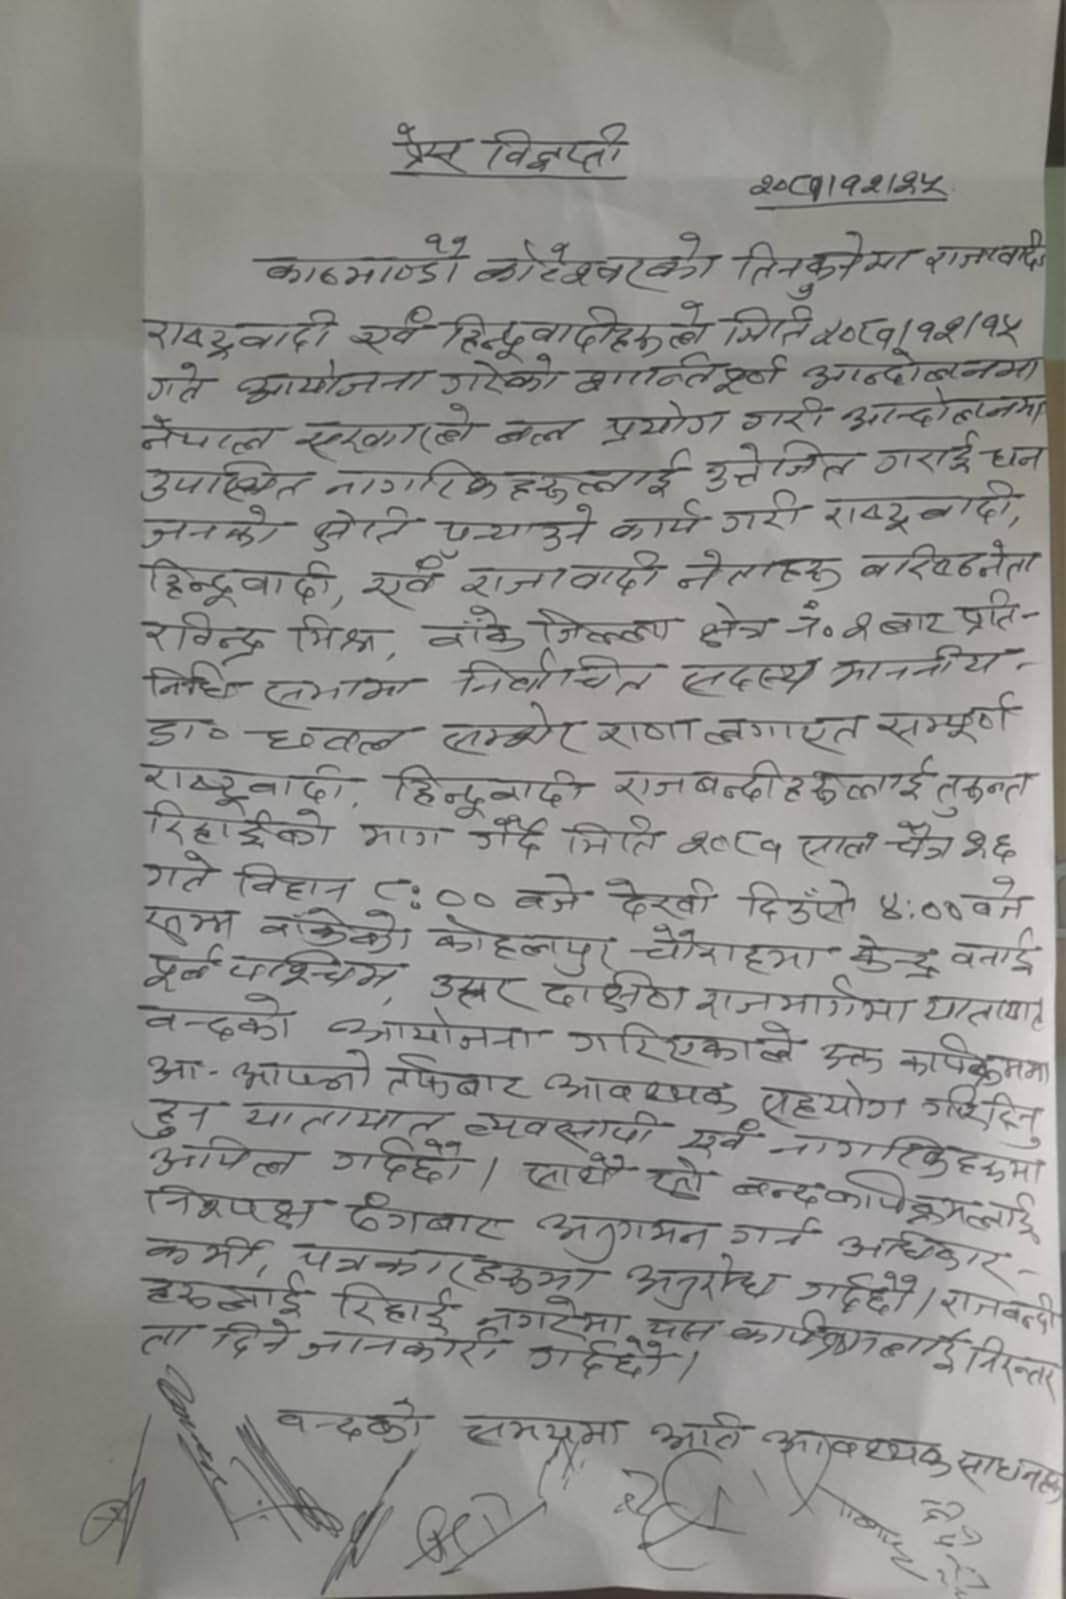 प्रेस विज्ञप्ती
२०८१।१२।२५
काठमाण्डौं कोटेश्वरको तिनकुनेमा राजावादी,
राष्ट्रवादी एवं हिन्दूवादीहरूले मिति २०८१।१२।१५
गते आयोजना गरेको शान्तिपूर्ण आन्दोलनमा
नेपाल सरकारले बल प्रयोग गरी आन्दोलनमा
उपस्थित नागरिकहरूलाई उत्तेजित गराई धन
जनको क्षेति पुर्‍याउने कार्य गरी राष्ट्रवादी,
हिन्दूवादी, एवं राजावादी नेताहरू बरिष्ठ नेता
रविन्द्र मिश्र, बाँके जिल्ला क्षेत्र नं. २ बाट प्रति-
निधि सभामा निर्वाचित सदस्य माननीय
डा. धवल सम्शेर राणा लगाएत सम्पूर्ण
राष्ट्रवादी, हिन्दूवादी राजबन्दीहरूलाई तुरून्त
रिहाईको माग गर्दै मिति २०८१ साल चैत्र २६
गते विहान ८:०० बजे देखी दिउँसो ४:०० बजे
सम्म बाँकेको कोहलपुर चौराहमा केन्द्र बनाई
पूर्व पश्चिम, उत्तर दक्षिण राजमार्गमा यातायात
बन्दको आयोजना गरिएकाले उक्त कार्यक्रममा
आ-आफ्नो तर्फबाट आवश्यक सहयोग गरिदिनु
हुन यातायात व्यवसायी एवं नागरिकहरूमा
अपिल गर्दछौं। साथै सो बन्द कार्यक्रमलाई
निश्पक्ष ढंगबाट अनुगमन गर्न अधिकार-
कर्मी, पत्रकारहरूमा अनुरोध गर्दछौं। राजबन्दी
हरूलाई रिहाई नगरेमा यस कार्यक्रमलाई निरन्तर
ता दिने जानकारी गर्दछौं।
बन्दको समयमा अति आवश्यक साधनहरू